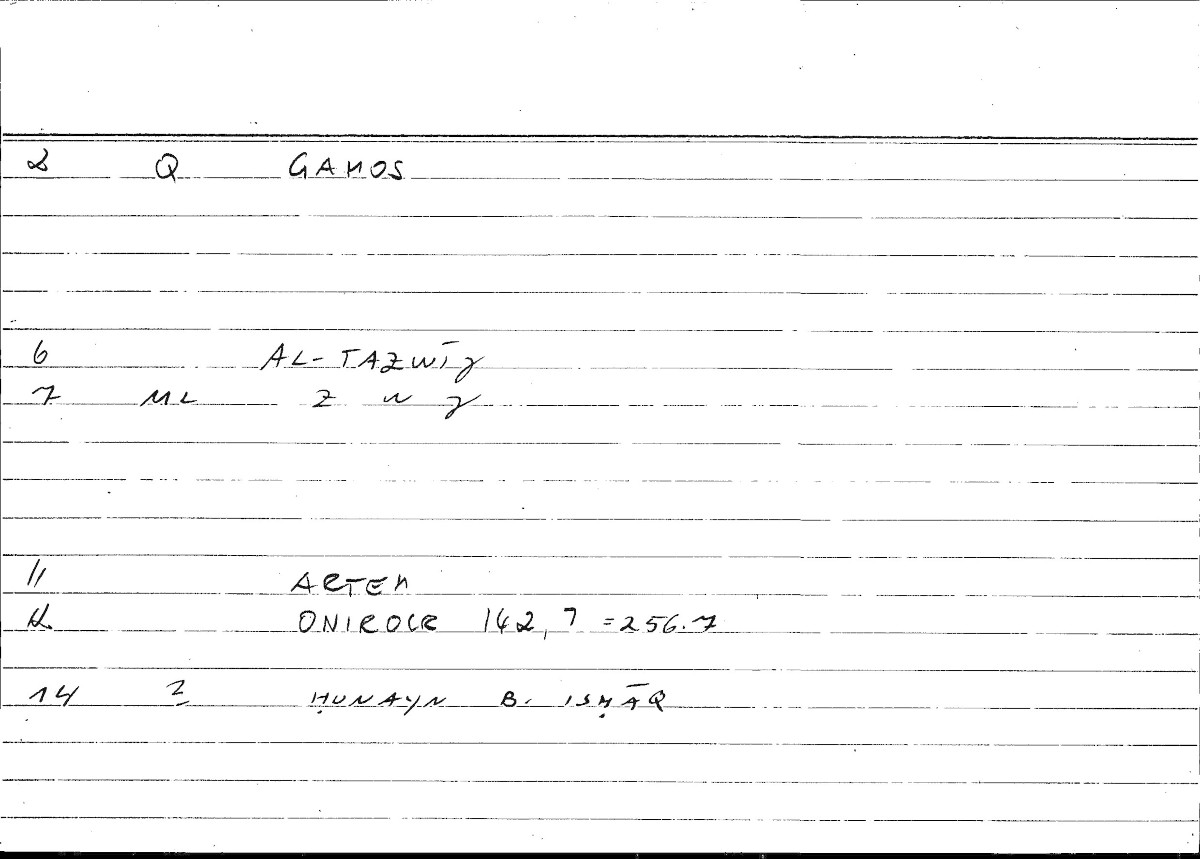 2 Q GAMOS
6 AL-TAZWĪJ
7 ML Z W J
11 ARTEM
12 ONIROCR 142,7 =256.7
14 2 ḤUNAYN B. ISḤĀQ